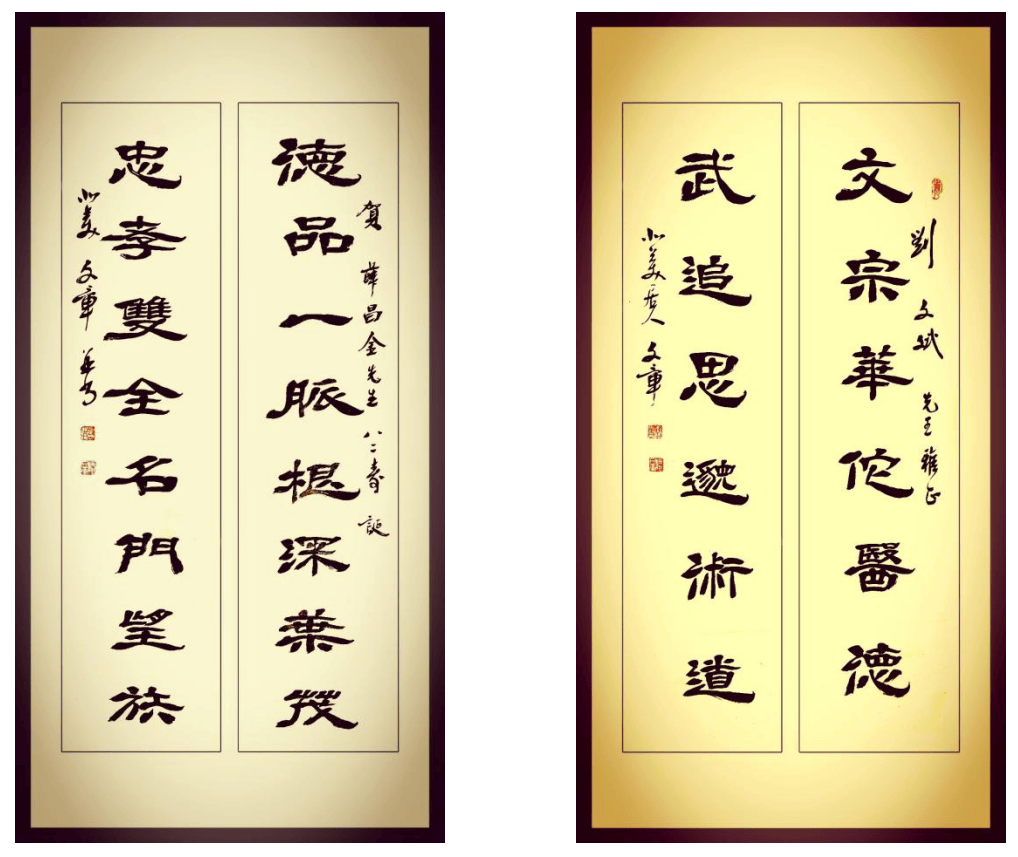 德品一脈根深葉茂
賀 薛昌金先生 八二壽誕
忠孝雙全名門望族
北美 文章 並書
文宗華佗醫德
劉文斌先生雅正
武追思邈術道
北美居人 文章